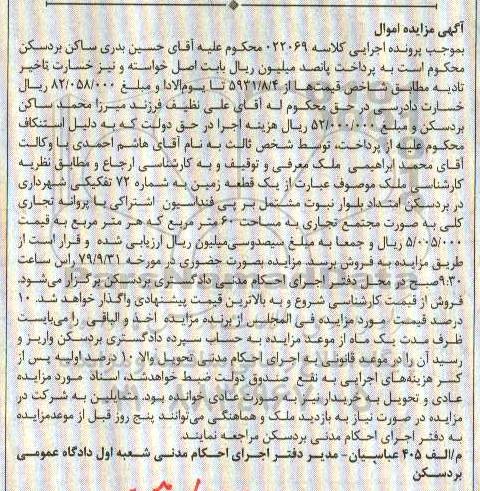 آگهی مزایده اموال
بموجب پرونده اجرایی کلاسه ۰۲۲۰۶۹ محکوم علیه آقای حسین بدری ساکن بردسکن
محکوم است به پرداخت پانصد میلیون ریال بابت اصل خواسته و نیز خسارت تاخیر
تادیه مطابق شاخص قیمت‌ها از ۵۹۳۱/۸/۴ تا یوم‌الادا و مبلغ ۸۲/۰۵۸/۰۰۰ ریال
خسارت دادرسی در حق محکوم له آقای علی نظیف فرزند میرزا محمد ساکن
بردسکن و مبلغ ۵۲/۰۰۰/۰۰۰ ریال هزینه اجرا در حق دولت که به دلیل استنکاف
محکوم علیه از پرداخت، توسط شخص ثالث به نام آقای هاشم احمدی با وکالت
آقای محمد ابراهیمی ملک معرفی و توقیف و به کارشناسی ارجاع و مطابق نظریه
کارشناسی ملک موصوف عبارت از یک قطعه زمین به شماره ۷۲ تفکیکی شهرداری
در بردسکن امتداد بلوار نبوت مشتمل بر پی فنداسیون اشتراکی با پروانه تجاری
کلی به صورت مجتمع تجاری به مساحت ۶۰ متر مربع که هر متر مربع به قیمت
۵/۰۰۵/۰۰۰ ریال و جمعا به مبلغ سیصدوسی‌میلیون ریال ارزیابی شده و قرار است از
طریق مزایده به فروش برسد. مزایده بصورت حضوری در مورخه ۷۹/۹/۳۱ راس ساعت
۹:۳۰صبح در محل دفتر اجرای احکام مدنی دادگستری بردسکن برگزار می‌شود.
فروش از قیمت کارشناسی شروع و به بالاترین قیمت پیشنهادی واگذار خواهد شد. ۱۰
درصد قیمت مورد مزایده فی المجلس از برنده مزایده اخذ و الباقی را می‌بایست
ظرف مدت یک ماه از موعد مزایده به حساب سپرده دادگستری بردسکن واریز و
رسید آن را در موعد قانونی به اجرای احکام مدنی تحویل والا ۱۰ درصد اولیه پس از
کسر هزینه‌های اجرایی به نفع صندوق دولت ضبط خواهدشد. اسناد مورد مزایده
عادی و تحویل به خریدار نیز به صورت عادی خوانده بود. متقاضیان به شرکت در
مزایده در صورت نیاز به بازدید ملک و هماهنگی می‌توانند پنج روز قبل از موعدمزایده
به دفتر اجرای احکام مدنی بردسکن مراجعه نمایند.
م/الف ۴۰۵ عباسیان - مدیر دفتر اجرای احکام مدنی شعبه اول دادگاه عمومی
بردسکن